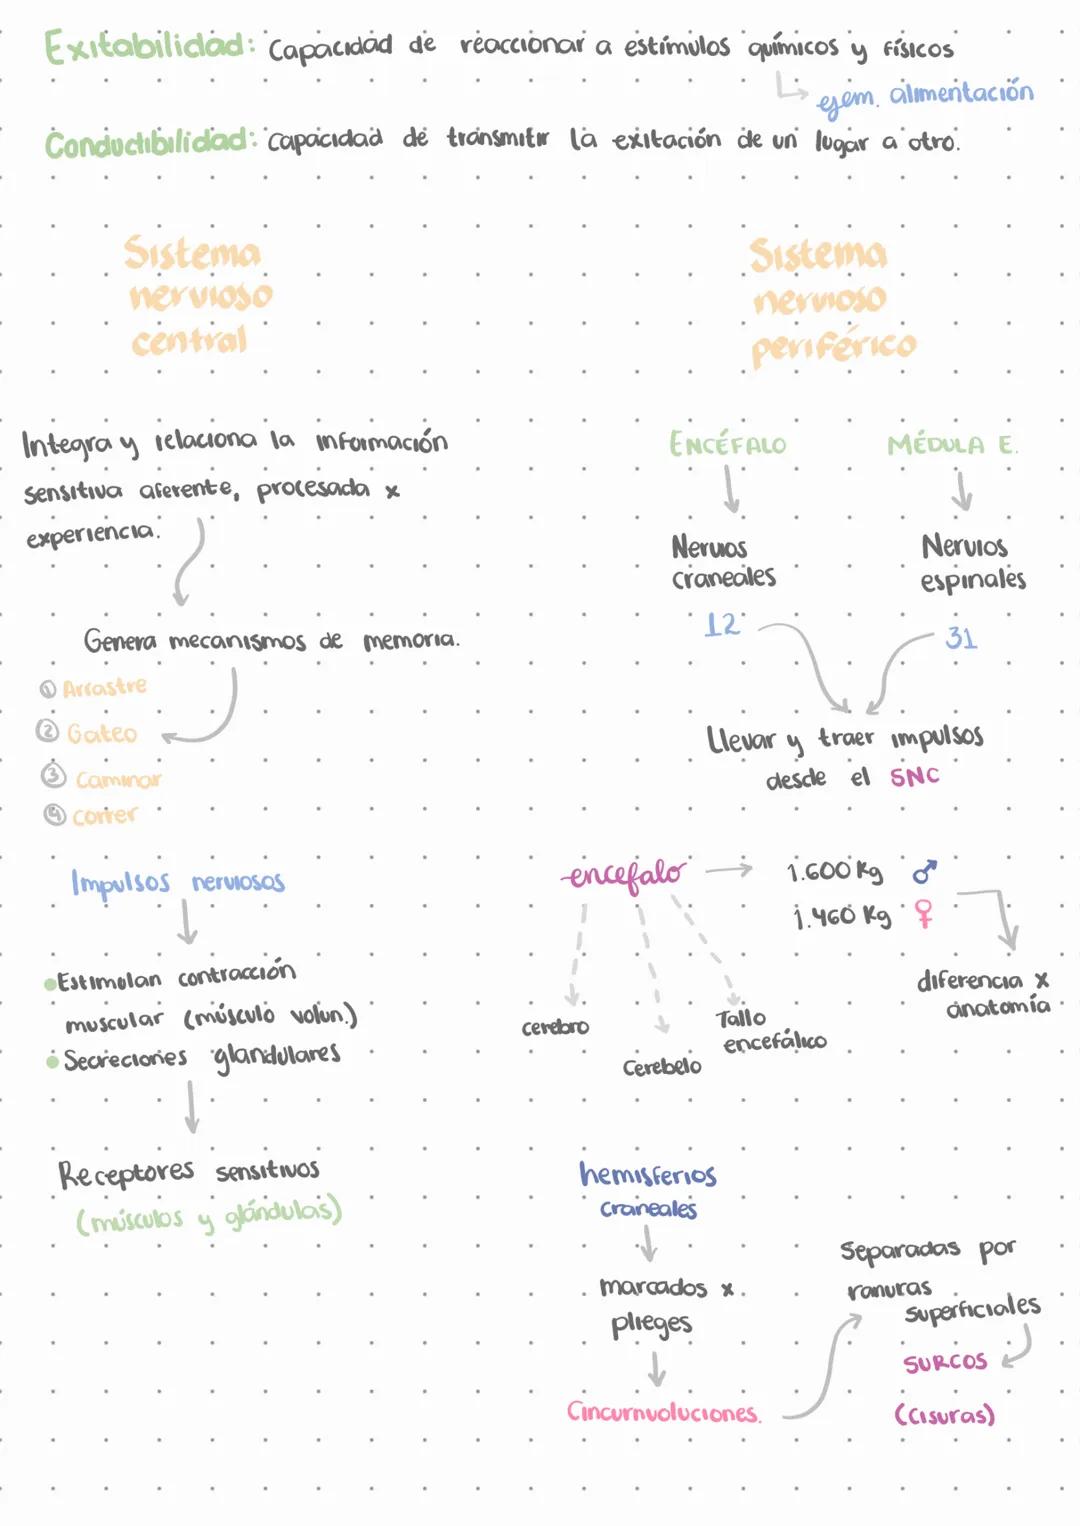 Exitabilidad: Capacidad de reaccionar a estímulos químicos y físicos
ejem. alimentación
Conductibilidad: Capacidad de transmitir la exitación de un lugar a otro.
Sistema
nervioso
central
Integra y relaciona la información
sensitiva aferente, procesada x
experiencia.
Genera mecanismos de memoria.
① Arrastre
② Gateo
③ Caminar
④ correr
Impulsos nerviosos
•Estimulan contracción
muscular (músculo volun.)
•Secreciones glandulares
Receptores sensitivos
(músculos y glándulas)
Sistema
nervioso
periférico
ENCÉFALO
MÉDULA E.
Nervios
craneales
Nervios
espinales
12
31
Llevar y traer impulsos
desde el SNC
encefalo
1.600 Kg ♂
1.460 Kg ♀
diferencia x
anatomía
cerebro
Cerebelo
Tallo
encefálico
hemisferios
craneales
marcados x
plieges
Cincurnvoluciones.
Separadas por
ranuras
superficiales
SURCOS
(Cisuras)